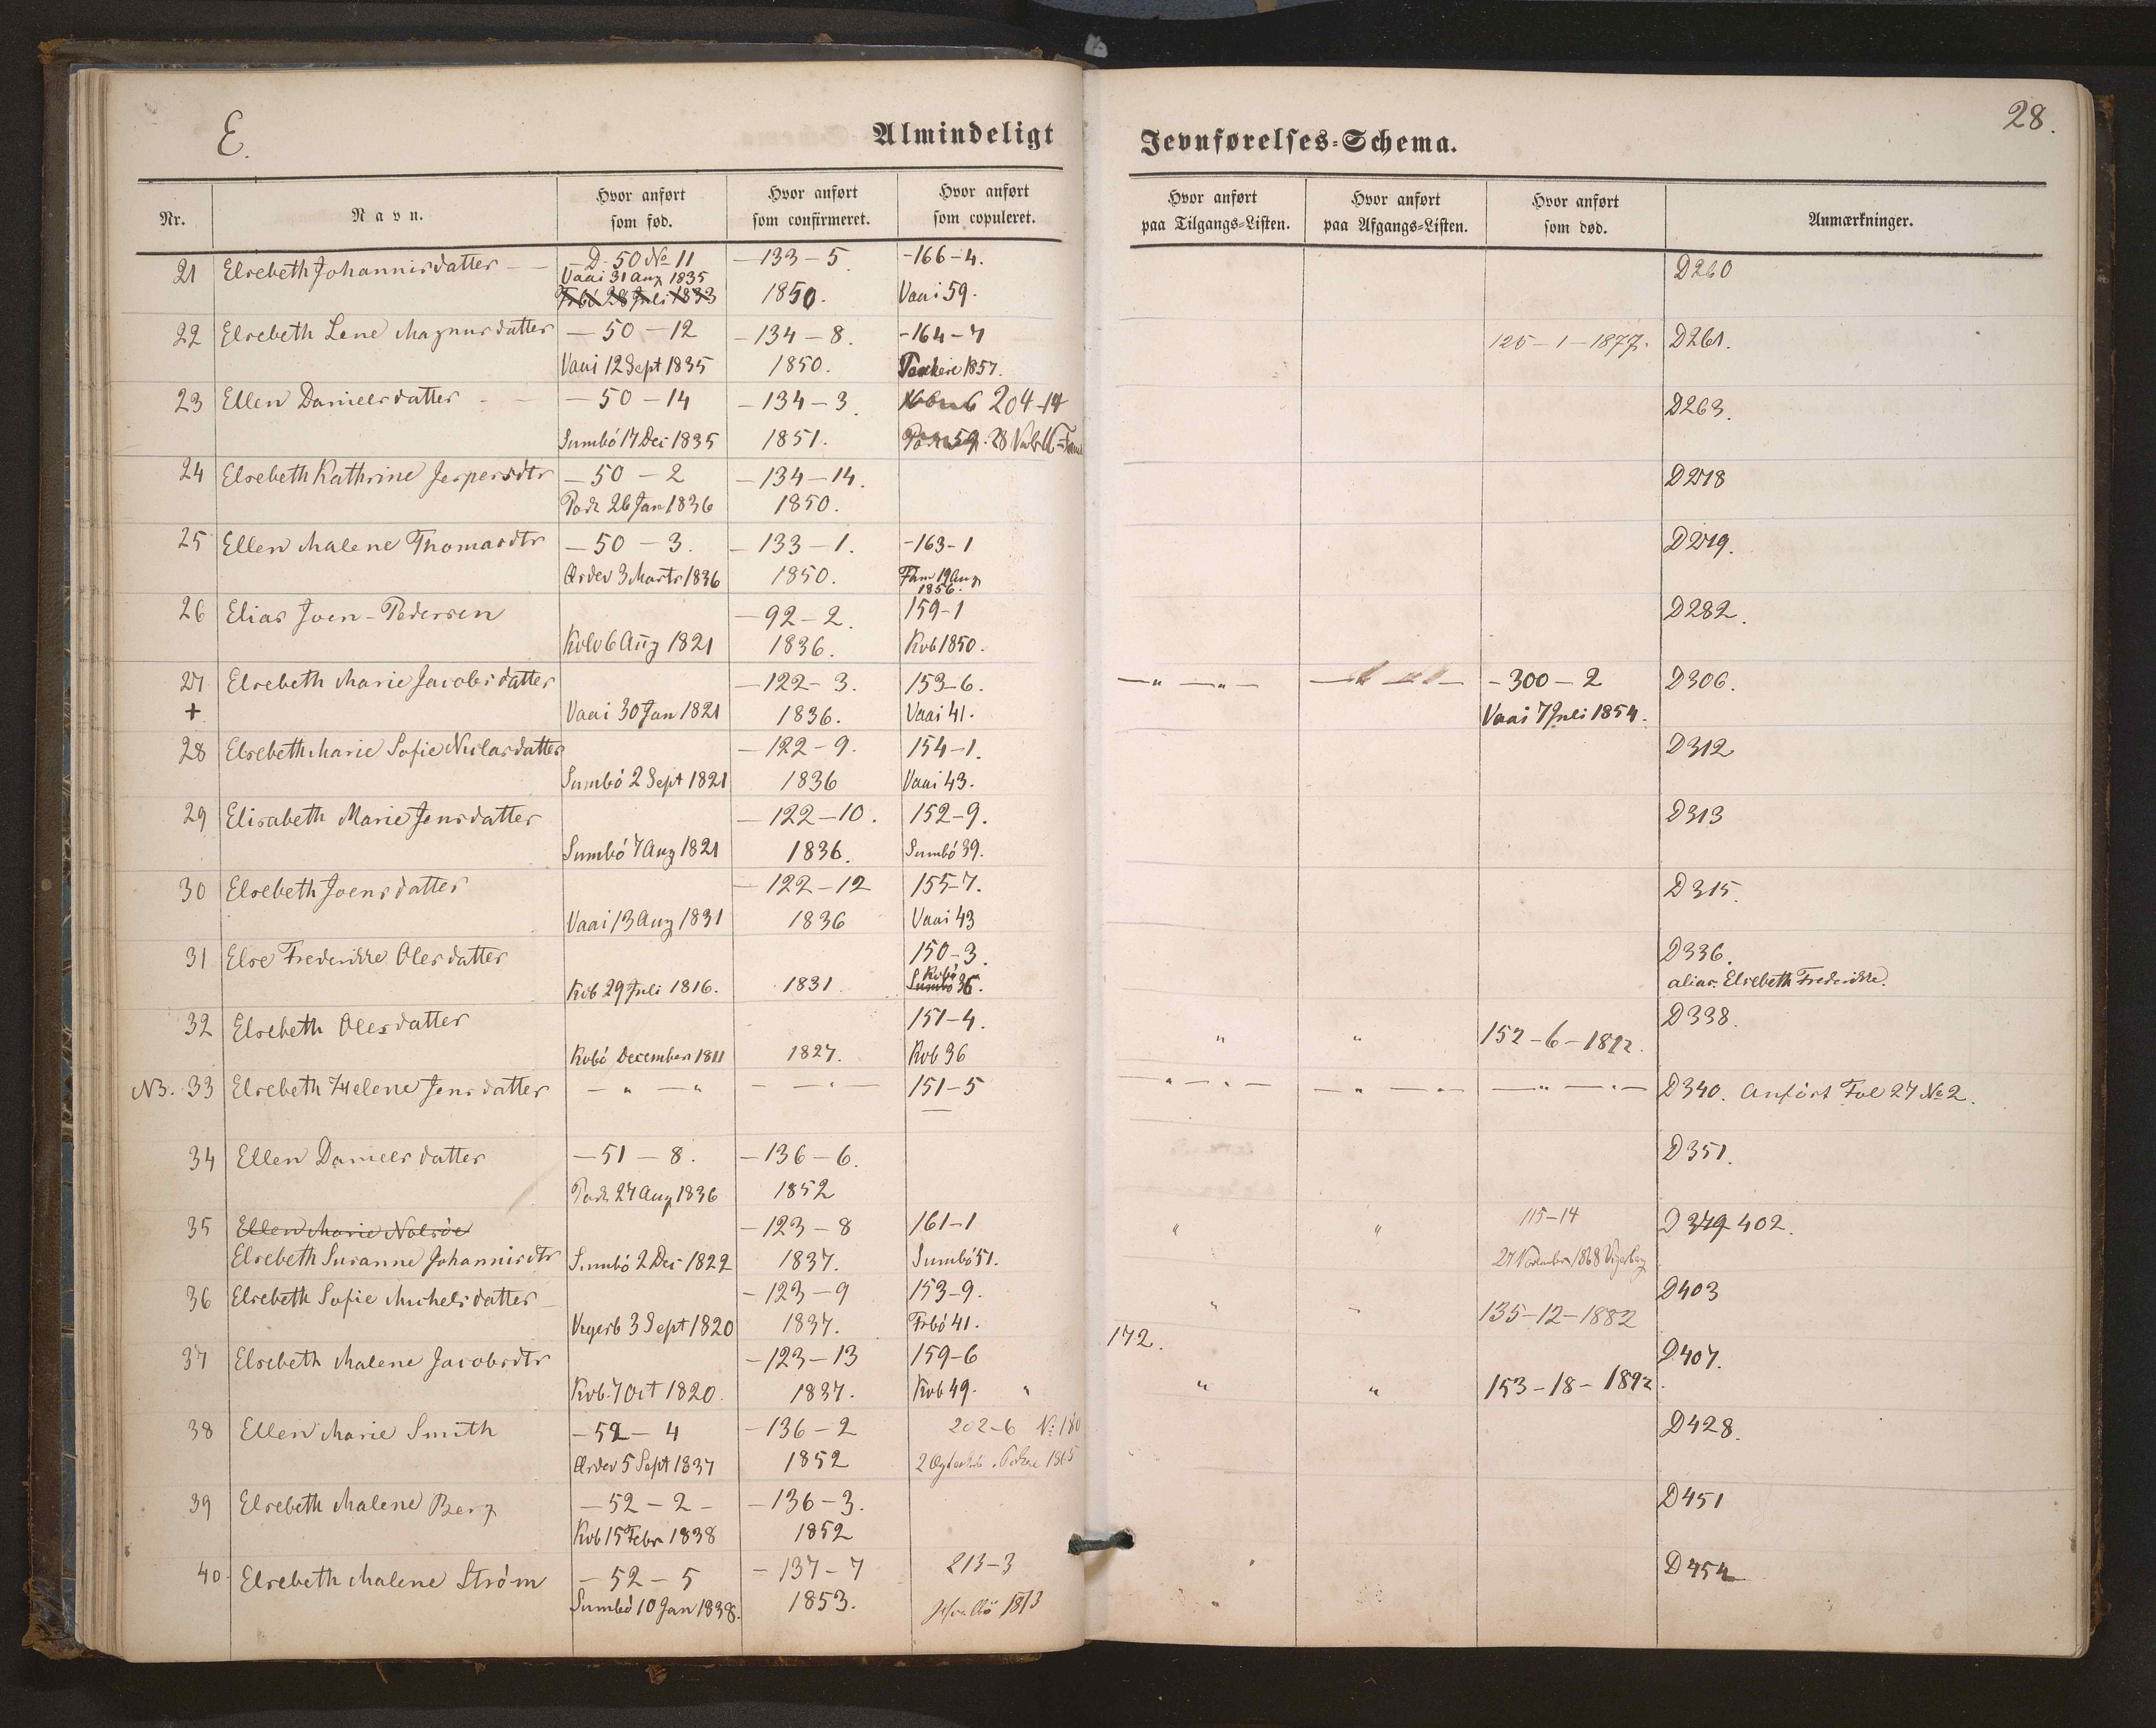 E.
Almindeligt Jevnførelses=Schema.
28.
Nr. Navn. Hvor anført som fød. Hvor anført som confirmeret. Hvor anført som copuleret. Hvor anført paa Tilgangs=Listen. Hvor anført paa Afgangs=Listen. Hvor anført som død. Anmærkninger.
21 Elsebeth Johannisdatter — D. 50 No 11 — 133 - 5 - 166 - 4. D260
Vaai 31 Aug 1835
Frbö 28 Juli 1833 1850. Vaai 59.
22 Elsebeth Lene Magnusdatter — 50 - 12 — 134 - 8. - 164 - 7 125 - 1 - 1877. D261.
Vaai 12 Sept 1835 1850. 1857.
23 Ellen Danielsdatter — 50 - 14 — 134 - 3. 204 - 14 D263.
Sumbö 17 Dec 1835 1851. 59. 28
24 Elsebeth Kathrine Jespersdtr — 50 - 2 — 134 - 14. D278
Pork 26 Jan 1836 1850.
25 Ellen Malene Thomasdtr — 50 - 3. — 133 - 1. - 163 - 1 D279.
Ørdev 3 Marts 1836 1850. Fam 19 Aug
1856.
26 Elias Joen - Pedersen — 92 - 2. 159 - 1 D282.
Kolv 6 Aug 1821 1836. Kvb 1850.
27 Elsebeth Marie Jacobsdatter — 122 - 3. 153 - 6. — " — " — - 300 - 2 D306.
+ Vaai 30 Jan 1821 1836. Vaai 41. Vaai 7 Juli 1854.
28 Elsebeth Marie Sofie Niclasdatter — 122 - 9. 154 - 1. D312
Sumbö 2 Sept 1821 1836 Vaai 43.
29 Elisabeth Marie Jensdatter — 122 - 10. 152 - 9. D313
Sumbö 7 Aug 1821 1836. Sumbö 39.
30 Elsebeth Joensdatter — 122 - 12 155 - 7. D315.
Vaai 13 Aug 1831 1836 Vaai 43
31 Else Frederikke Olesdatter 150 - 3. D336.
Kvbö
Kvb 29 Juli 1816. 1831 Sumbö 36. alias. Elsebeth Frederikke.
32 Elsebeth Olesdatter 151 - 4. " " 152 - 6 - 1892. D338.
Kvbö December 1811 1827. Kvb 36
NB. 33 Elsebeth Helene Jensdatter — " — " — " — 151 - 5 — " — " — — " — " — — " — " — D340. Anført Fol 27 No 2.
34 Ellen Danielsdatter — 51 - 8. — 136 - 6. D351.
Pork 27 Aug 1836 1852
35 Ellen Marie Nolsöe — 123 - 8 161 - 1 " " 115 - 14 D379 402.
Elsebeth Susanne Johannisdtr Sumbö 2 Dec 1822 1837. Sumbö 51. 27 November 1868
36 Elsebeth Sofie Michelsdatter — 123 - 9 153 - 9. " " 135 - 12 - 1882 D403
Vegerb 3 Sept 1820 1837. Frbö 41.
172.
37 Elsebeth Malene Jacobsdtr — 123 - 13 159 - 6 D407.
Kvb. 7 Oct 1820. 1837. Kvb 49. " " " 153 - 18 - 1892.
38 Ellen Marie Smith — 52 - 4 — 136 - 2 202 - 6 D428.
Ørdev 5 Sept 1837 1852 1865
39 Elsebeth Malene Berg — 52 - 2 - — 136 - 3. D451
Kvb 15 Febr 1838 1852
40. Elsebeth Malene Ström — 52 - 5 — 137 - 7 213 - 3 D454
Sumbö 10 Jan 1838. 1853. 1873